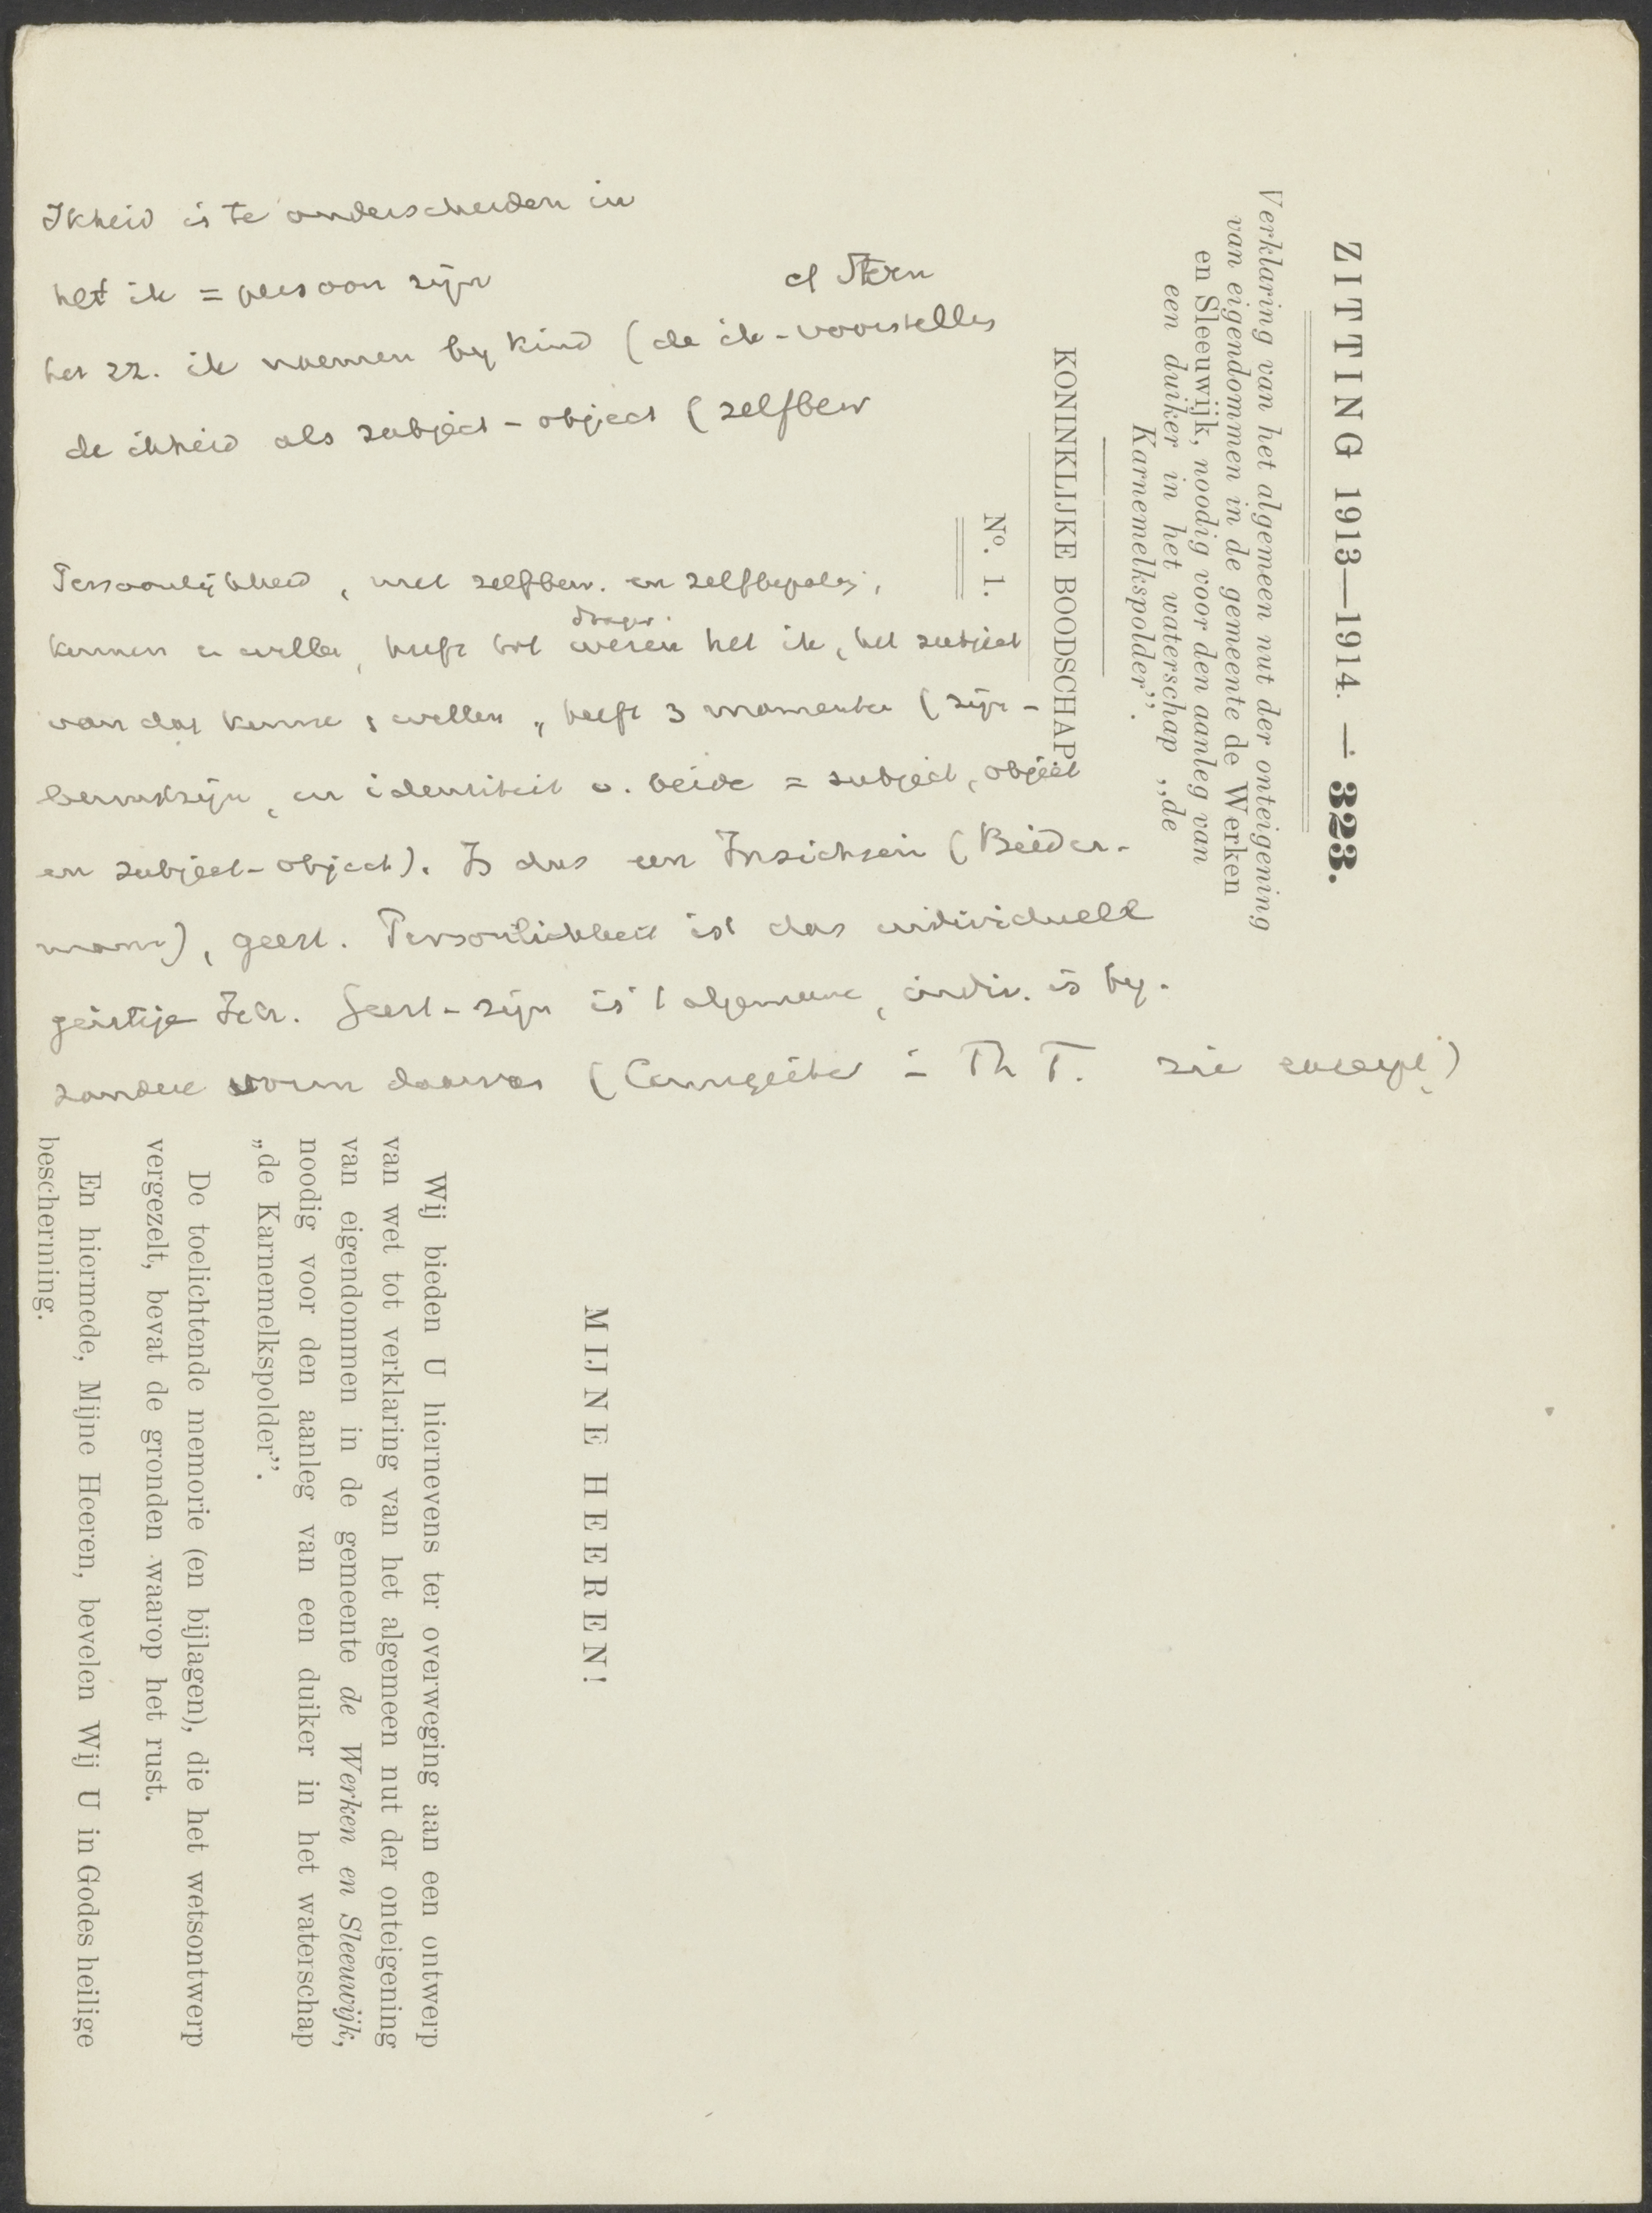 Ikheid is te onderscheiden in
het ik = persoon zijn
cf Stern
het zz. ik noemen by kind (de ik-voorstelles
de ikheid als subject - object (zelfbew
Persoonlijkheid, met zelfbew. en zelfbepaling,
drager.
kennen en willen, heeft tot wezen het ik, het subject
van dat kennen, willen, heeft 3 momenten (zijn -
bewustzijn, en identiteit v. beide = subject, object
en subject-object). Is dus een Insichsein (Bieder-
mann), geest. Persönlichkeit ist das individuell
geistige Ich. Geest-zijn is 't algemeene, indiv. is by-
zondere vorm daarvan (= Th T. zie excerpt)
ZITTING 1913—1914. — 323.
Verklaring van het algemeen nut der onteigening
van eigendommen in de gemeente de Werken
en Sleeuwijk, noodig voor den aanleg van
een duiker in het waterschap „de
Karnemelkspolder”.
KONINKLIJKE BOODSCHAP
No. 1.
MIJNE HEEREN!
Wij bieden U hiernevens ter overweging aan een ontwerp
van wet tot verklaring van het algemeen nut der onteigening
van eigendommen in de gemeente de Werken en Sleeuwijk,
noodig voor den aanleg van een duiker in het waterschap
„de Karnemelkspolder”.
De toelichtende memorie (en bijlagen), die het wetsontwerp
vergezelt, bevat de gronden waarop het rust.
En hiermede, Mijne Heeren, bevelen Wij U in Godes heilige
bescherming.